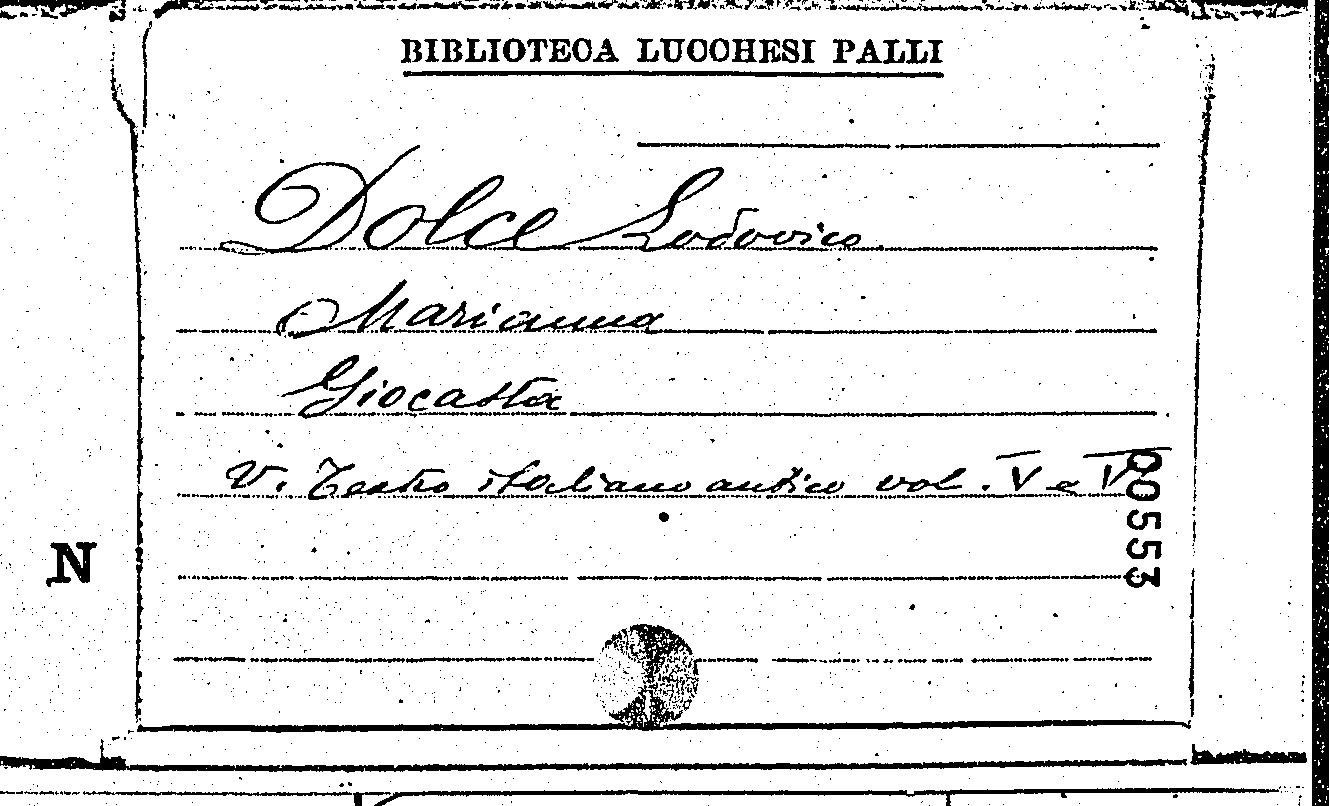 BIBLIOTECA LUCCHESI PALLI
Dolce Lodovico
Marianna
Giocasta
V. Teatro italiano antico vol. V e VI
00553
N